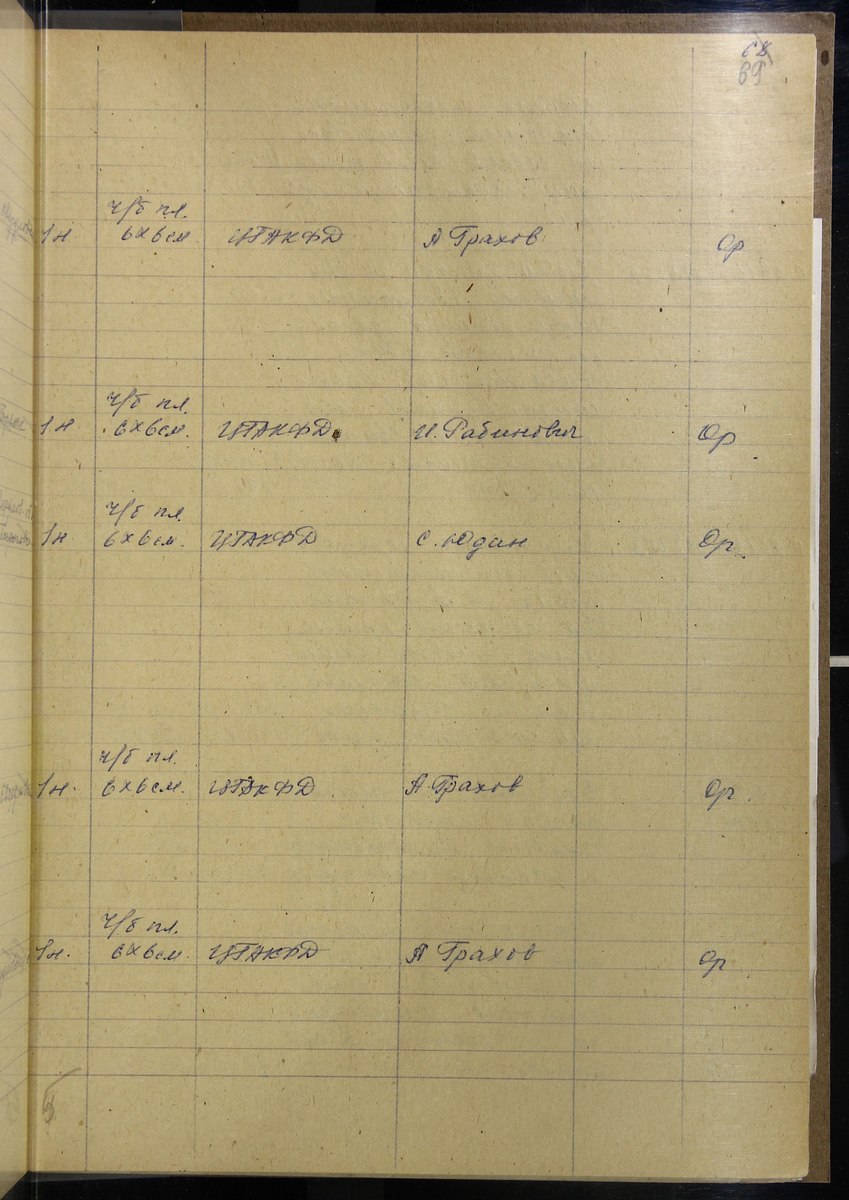 68
69
ч/б пл.
1н 6х6см ЦГАКФД А Грахов Ор
ч/б пл.
1н 6х6см. ЦГАКФД И. Рабинович Ор
ч/б пл.
1н 6х6см. ЦГАКФД С. Юдин Ор.
ч/б пл.
1н. 6х6см. ЦГАКФД А Грахов Ор.
ч/б пл.
1н. 6х6см. ЦГАКФД А Грахов Ор
5